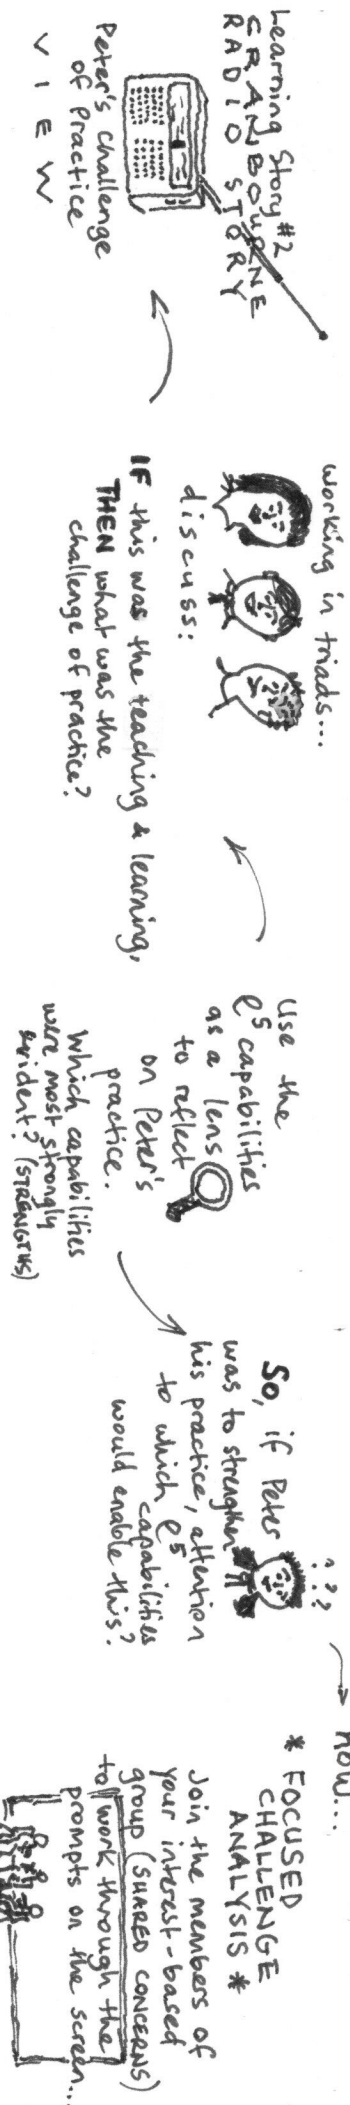 Learning Story #2
CRANBOURNE
RADIO STORY
Peter's challenge
of Practice
VIEW
working in triads...
discuss:
IF this was the teaching & learning,
THEN what was the
challenge of practice?
Use the
e5 capabilities
as a lens
to reflect
on Peter's
practice.
Which capabilities
were most strongly
evident? (STRENGTHS)
So, if Peter
was to strengthen
his practice, attention
to which e5
capabilities
would enable this?
???
now...
* FOCUSED
CHALLENGE
ANALYSIS *
Join the members of
your interest-based
group (SHARED CONCERNS)
to work through the
prompts on the screen...